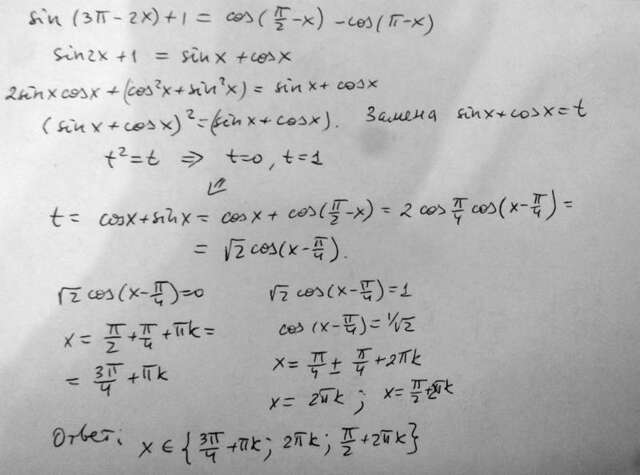 sin (3π - 2x) + 1 = cos(π/2 - x) - cos(π - x)
sin2x + 1 = sinx + cosx
2sinx cosx + (cos²x + sin²x) = sinx + cosx
(sinx + cosx)² = (sinx + cosx). Замена sinx + cosx = t
t² = t ⇒ t=0, t=1
⇙
t = cosx + sinx = cosx + cos(π/2 - x) = 2 cos π/4 cos(x - π/4) =
= √2 cos(x - π/4).
√2 cos(x - π/4) = 0 √2 cos(x - π/4) = 1
x = π/2 + π/4 + πk = cos (x - π/4) = 1/√2
= 3π/4 + πk x = π/4 ± π/4 + 2πk
x = 2πk ; x = π/2 + 2πk
Ответ: x ∈ {3π/4 + πk ; 2πk ; π/2 + 2πk}